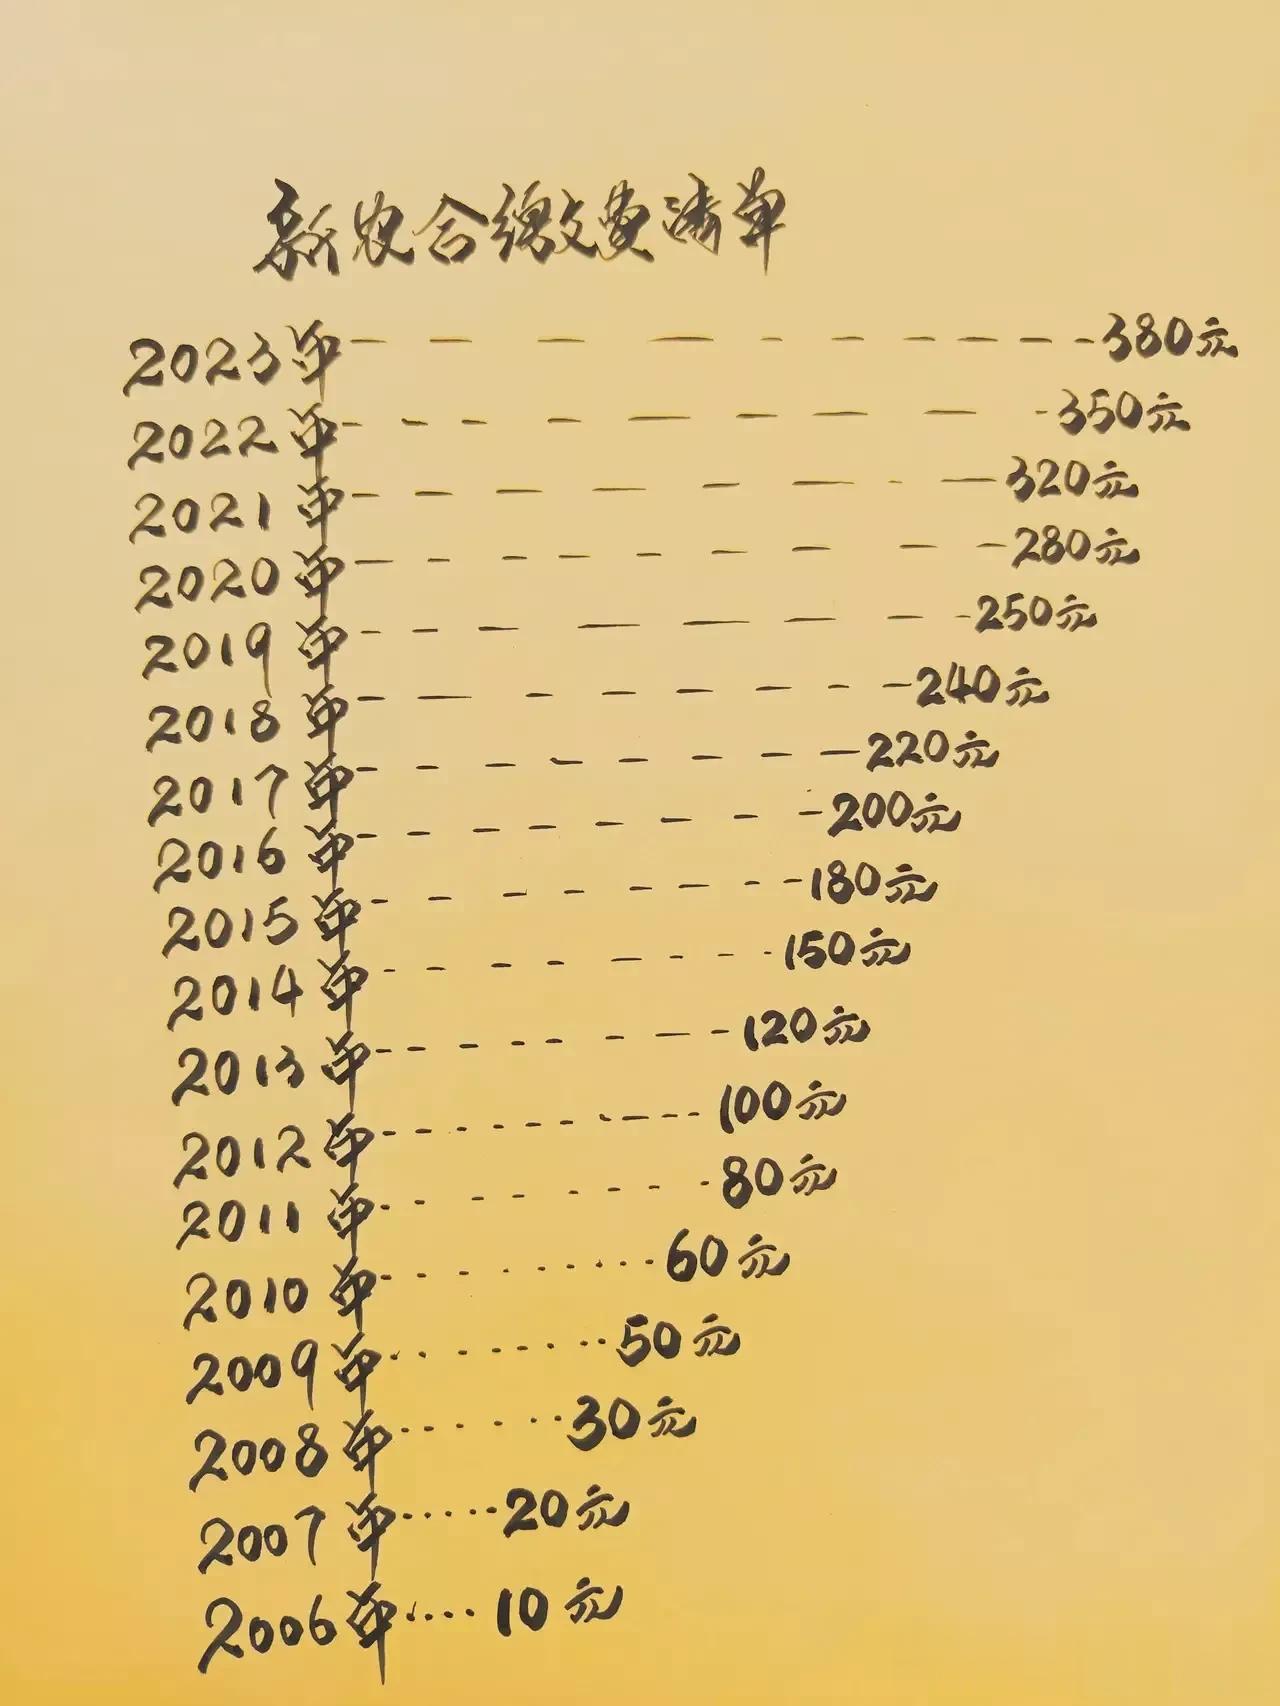 新农合缴费清单
2023年---------380元
2022年---------350元
2021年--------320元
2020年---------280元
2019年--------250元
2018年--------240元
2017年-------220元
2016年--------200元
2015年--------180元
2014年--------150元
2013年--------120元
2012年---------100元
2011年--------80元
2010年·········60元
2009年········50元
2008年·······30元
2007年·····20元
2006年····10元